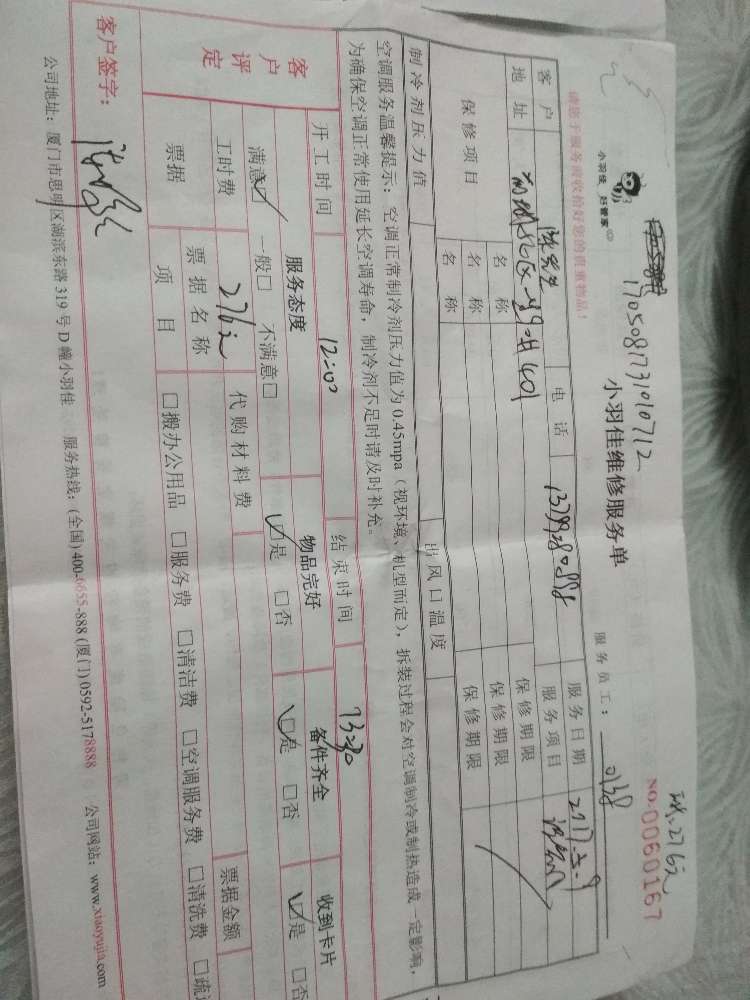 170508173101010712
小羽佳 好管家
小羽佳维修服务单
NO.0060167
请您于服务前收拾好您的贵重物品!
服务员工:
0138
客户
电话
服务日期
地址
401
服务项目
保修项目
名称
保修期限
名称
保修期限
名称
保修期限
制冷剂压力值
出风口温度
空调服务温馨提示:空调正常制冷剂压力值为0.45mpa(视环境、机型而定),拆装过程会对空调制冷或制热造成一定影响,
为确保空调正常使用延长空调寿命,制冷剂不足时请及时补充。
开工时间
12:00
结束时间
13:30
客户评定
服务态度
物品完好
备件齐全
收到卡片
满意☑ 一般□ 不满意□
☑是 □否
☑是 □否
☑是 □否
工时费
276元
代购材料费
票据
票据名称
票据金额
项目
□搬办公用品 □服务费 □清洁费 □空调服务费 □清洗费
客户签字:
公司地址:厦门市思明区湖滨东路319号D幢小羽佳 服务热线:(全国)400-6655-888(厦门)0592-5178888 公司网站:www.xiaoyujia.com